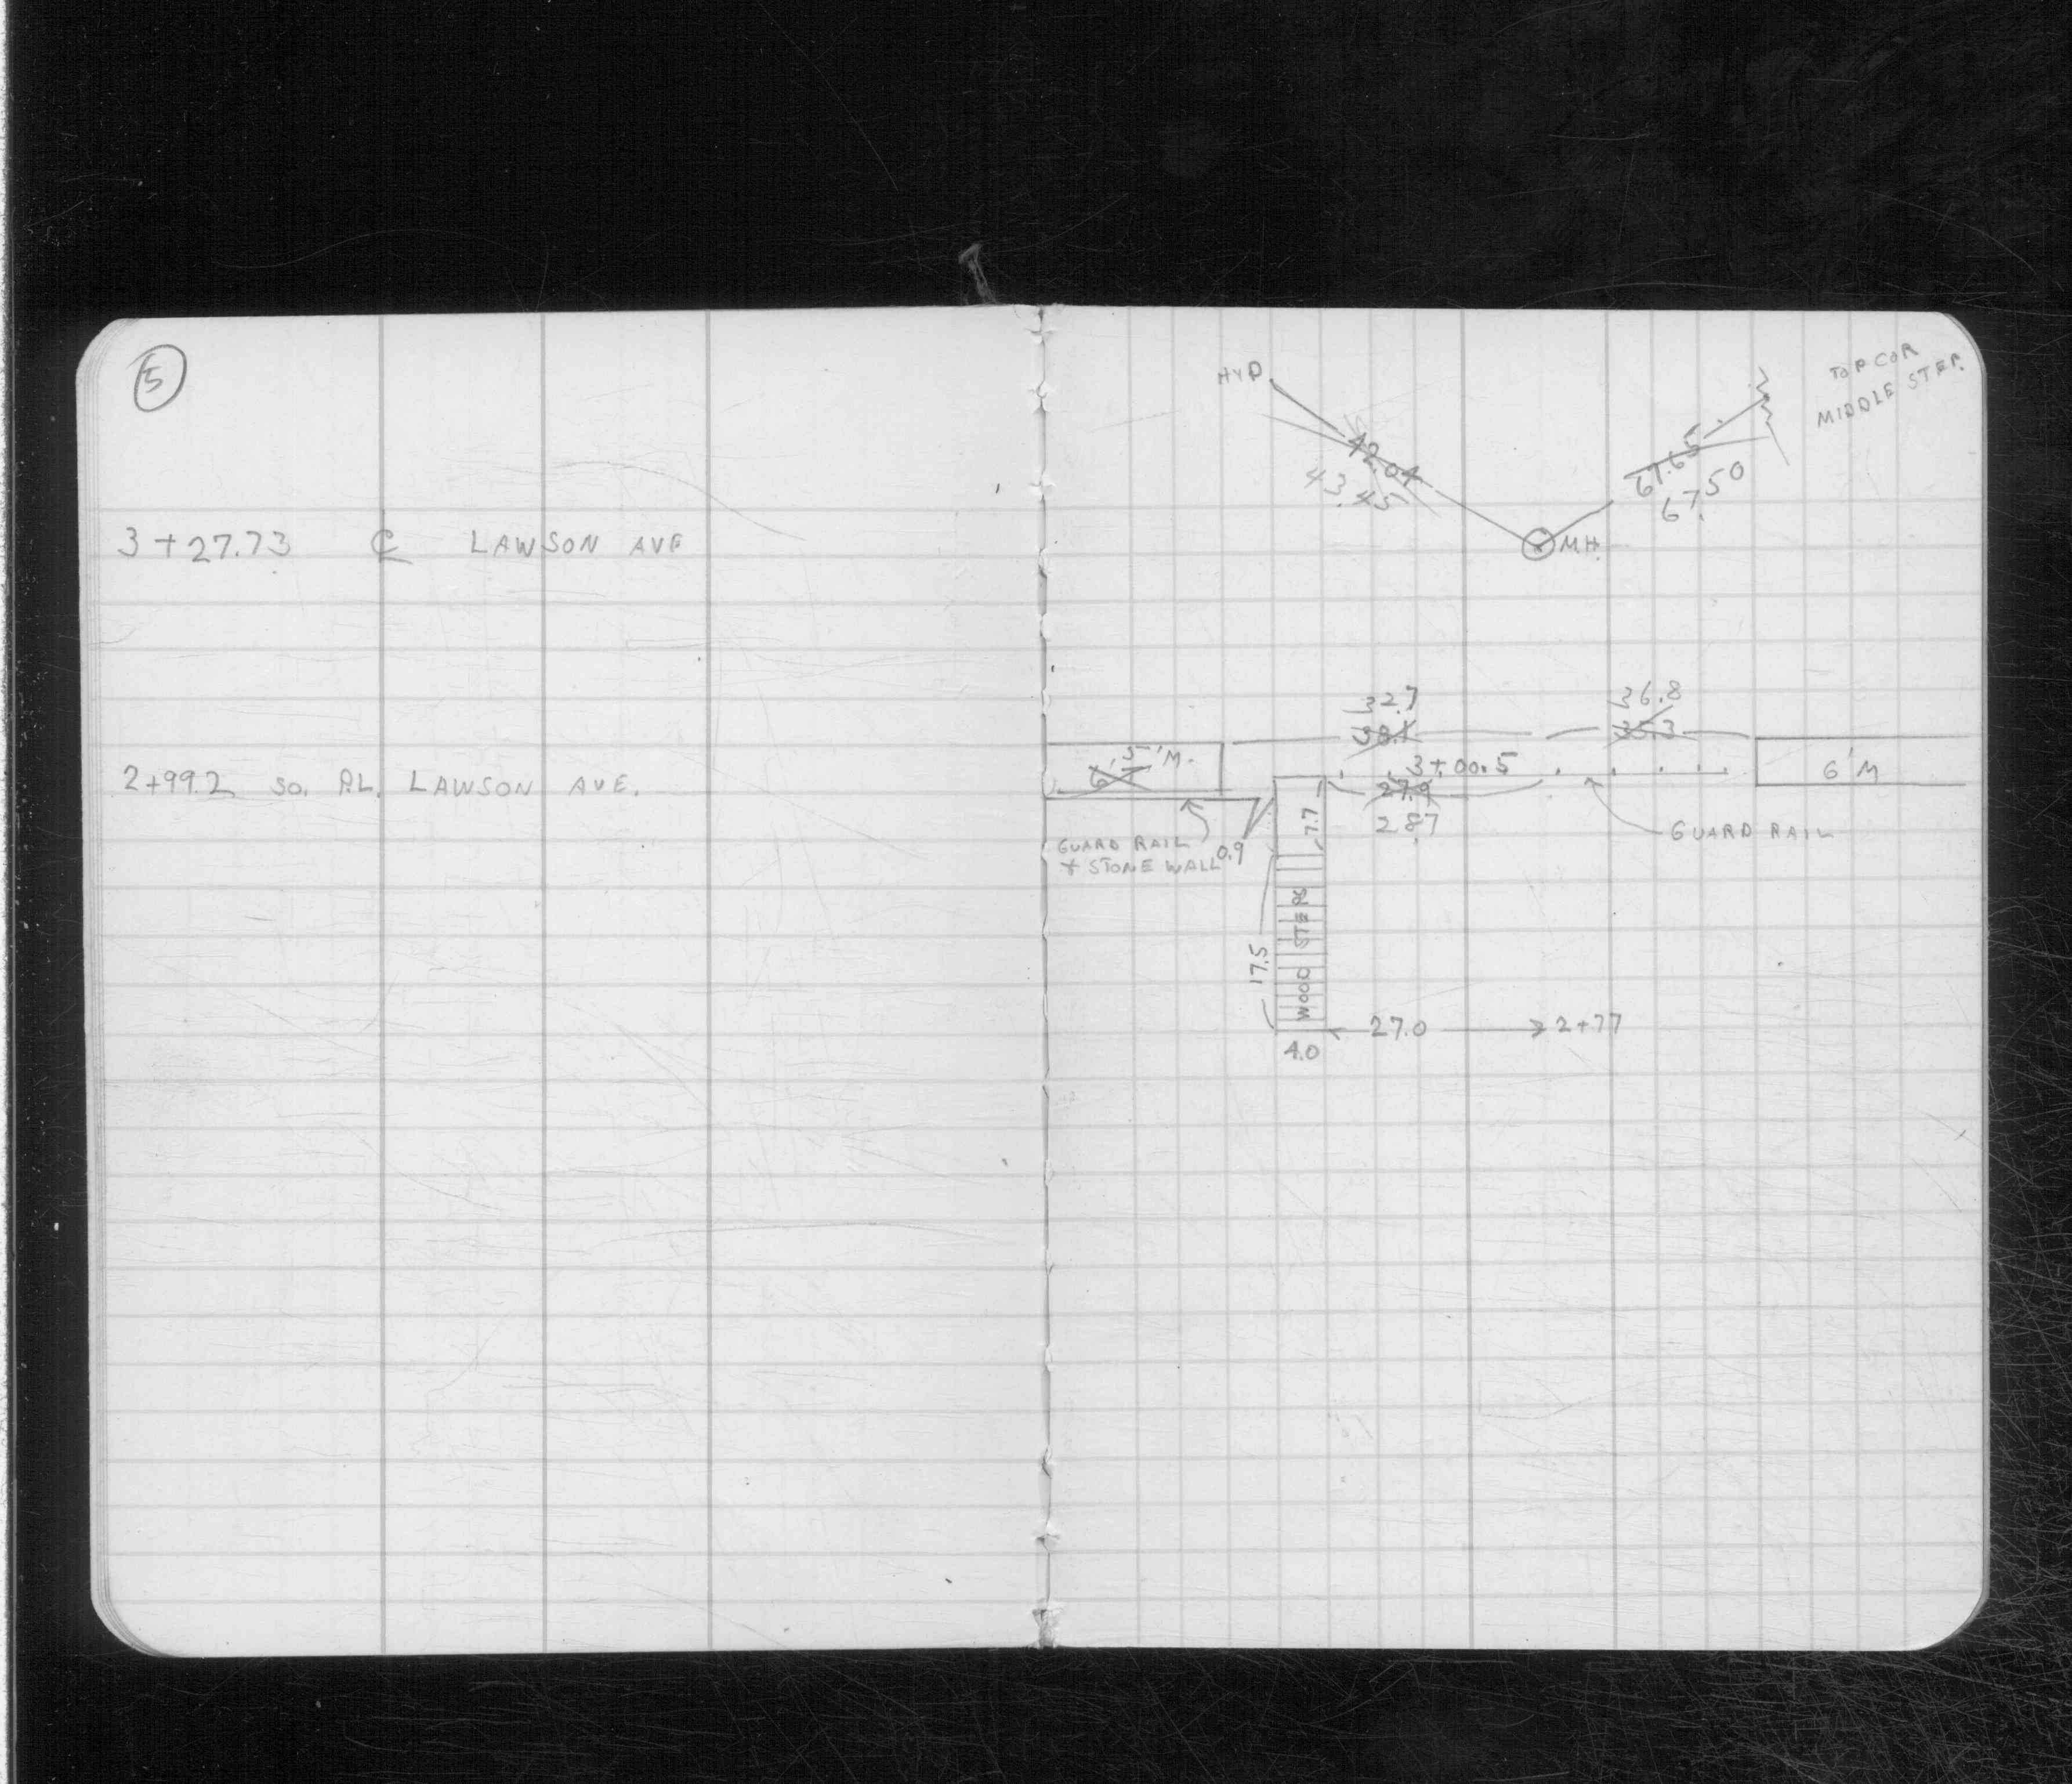 5
3+27.73 ℄ LAWSON AVE
2+99.2 SO. P.L. LAWSON AVE.
HYD
TOP COR
MIDDLE STEP.
42.04
43.45
67.65
67.50
MH.
32.7
36.8
33.1
35.3
6' 5' M.
3+00.5
6' M
27.9
28.7
7.7
GUARD RAIL
GUARD RAIL
+ STONE WALL
0.9
WOOD STEPS
17.5
27.0 2+77
4.0